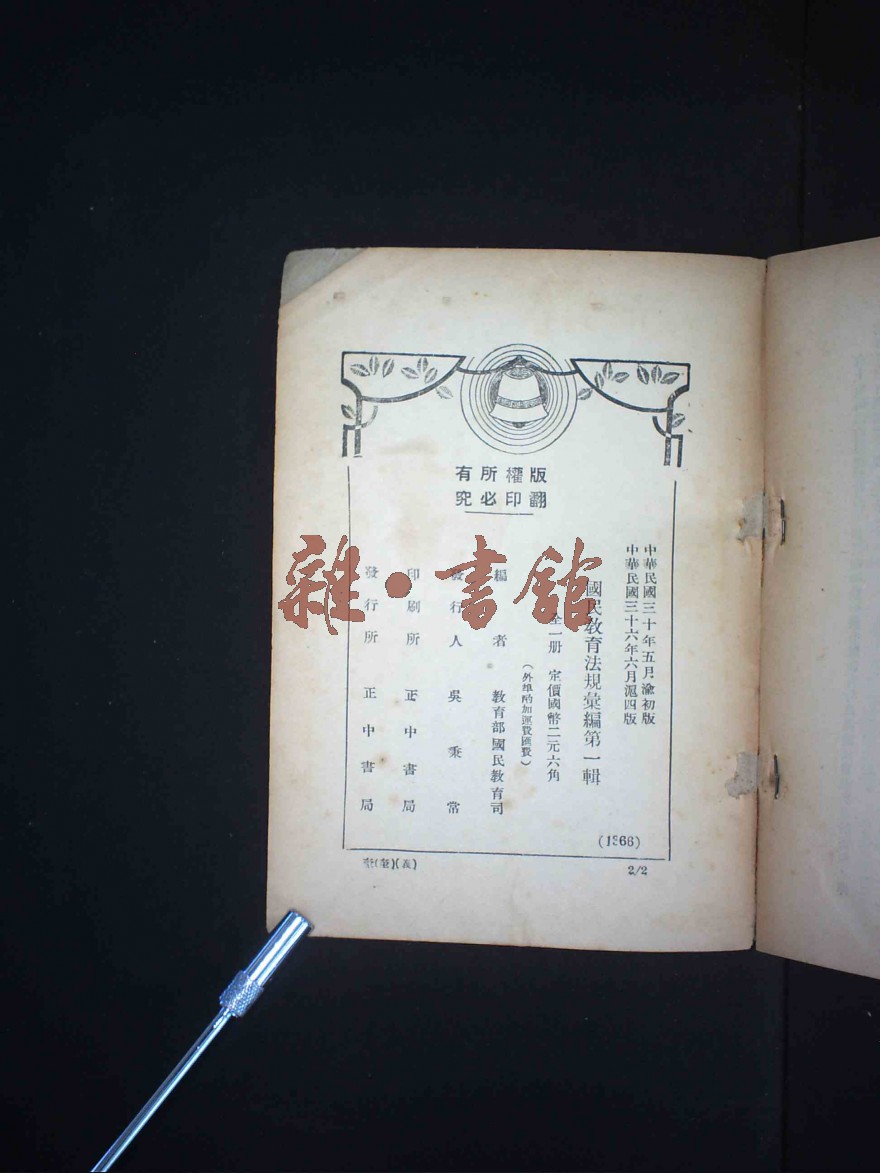 版權所有
翻印必究
中華民國三十年五月渝初版
中華民國三十六年六月滬四版
國民教育法規彙編第一輯
全一册 定價國幣二元六角
（外埠酌加運費匯費）
編者 教育部國民教育司
發行人 吳秉常
印刷所 正中書局
發行所 正中書局
(1366)
2/2
雜·書館